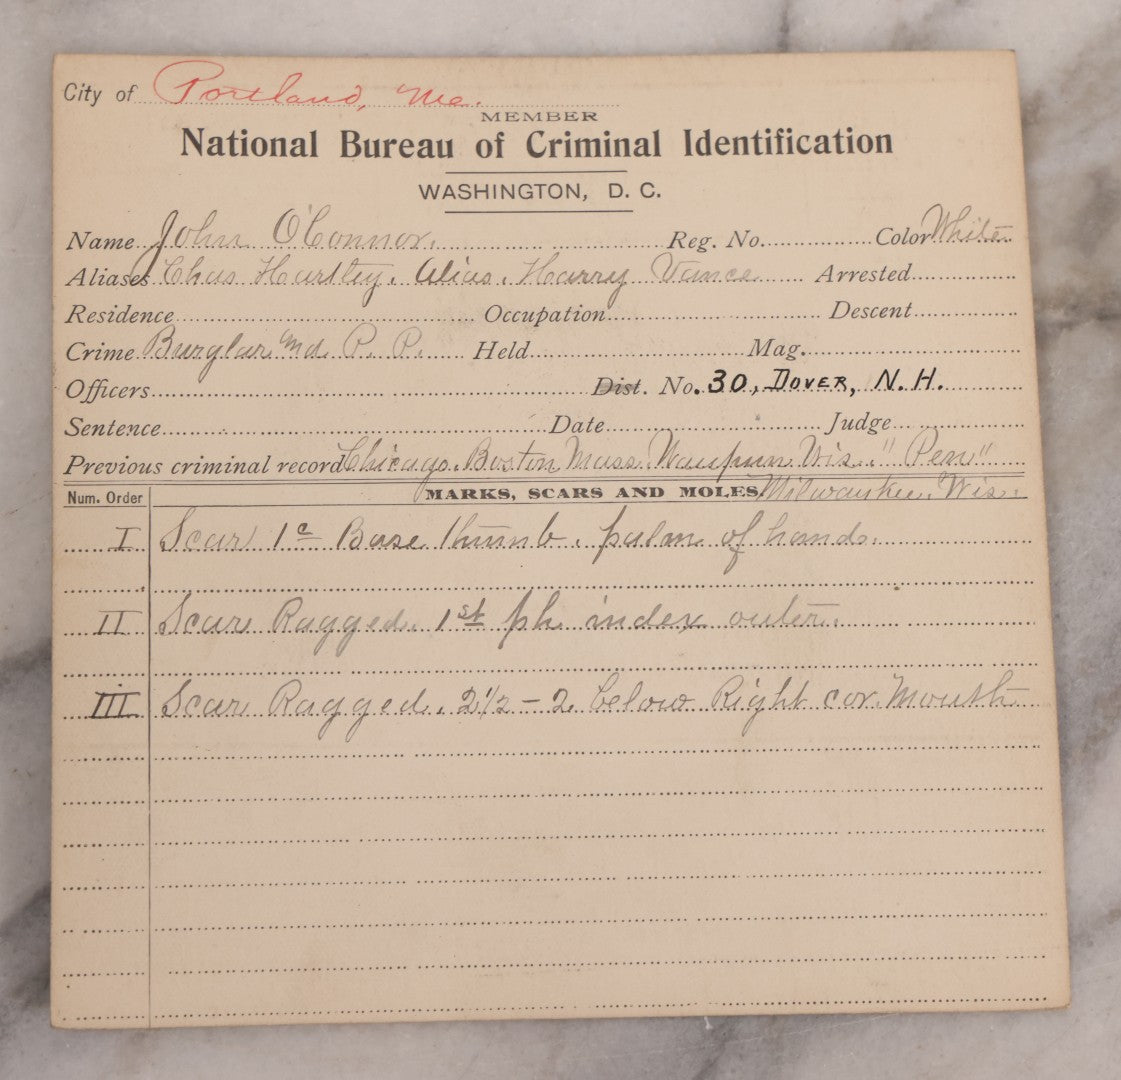 City of Portland, Me.
MEMBER
National Bureau of Criminal Identification
WASHINGTON, D. C.
Name John O'Connor. Reg. No. Color White
Aliases Chas Hartley. Alias. Harry Vance Arrested
Residence Occupation Descent
Crime Burglar and P. P. Held Mag.
Officers Dist. No. 30, DOVER, N. H.
Sentence Date Judge
Previous criminal record Chicago. Boston Mass. Waupun Wis. "Pen"
Num. Order MARKS, SCARS AND MOLES Milwaukee. Wis.
I Scar 1c Base thumb. palm of hand.
II Scar Ragged. 1st ph index outer.
III Scar Ragged. 2 1/2 - 2 below Right cor. Mouth